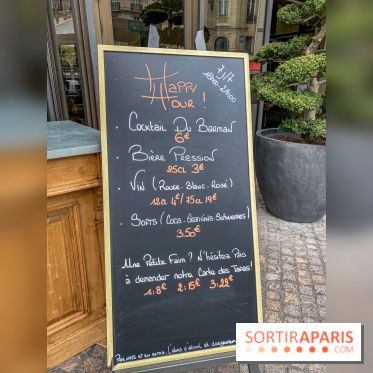 Happy
Hour !
7j/7
Cocktail Du Barman
6€
Bière Pression
25cl 3€
Vin (Rouge - Blanc - Rosé)
12cl 4€/75cl 19€
Softs (Coca - Orangina - Schweppes)
3.50€
Une Petite Faim ? N'hésitez Pas
à demander notre Carte des Tapas!
1:8€ 2:15€ 3:22€
Prix nets et en euros. L'abus d'alcool est dangereux
SORTIRAPARIS
.COM